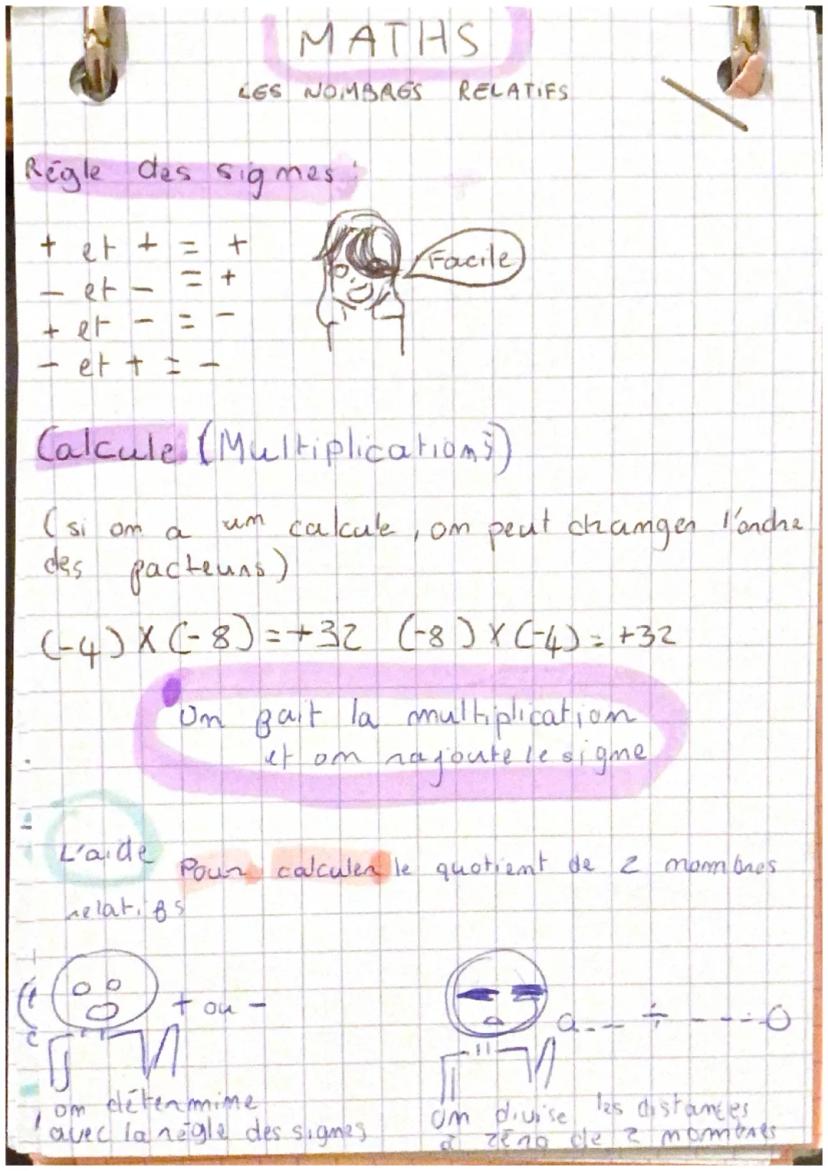 MATHS
LES NOMBRES RELATIFS
Règle des signes :
+ et + = +
- et - = +
+ et - = -
- et + = -
Facile
Calcule (Multiplications)
(si on a un calcule, on peut changer l'ordre
des facteurs)
(-4) X (-8) = +32 (-8) X (-4) = +32
On fait la multiplication
et on rajoute le signe
L'aide Pour calculer le quotient de 2 nombres
relatifs
+ ou -
a-- ÷ ----0
on détermine
avec la règle des signes
on divise les distances
à zéro de 2 nombres